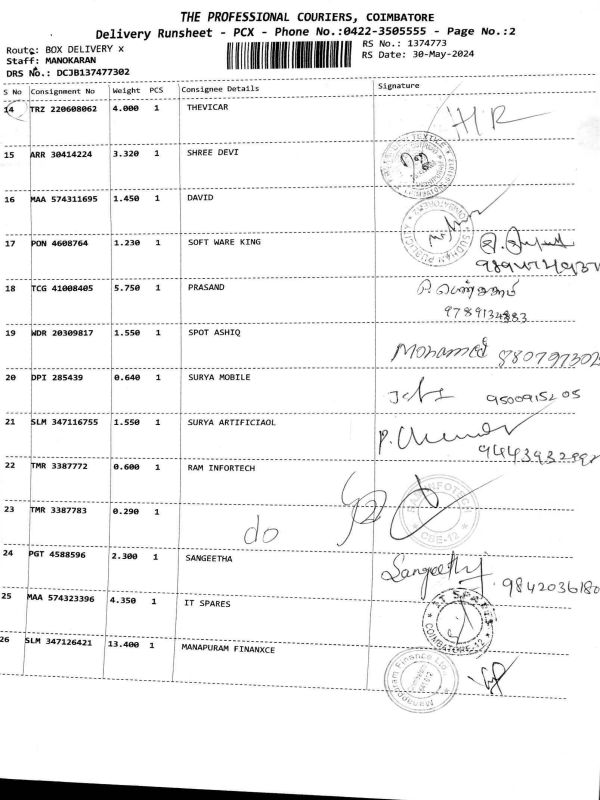 THE PROFESSIONAL COURIERS, COIMBATORE
Delivery Runsheet - PCX - Phone No.:0422-3505555 - Page No.:2
Route: BOX DELIVERY x
RS No.: 1374773
Staff: MANOKARAN
RS Date: 30-May-2024
DRS No.: DCJB137477302
S No Consignment No Weight PCS Consignee Details Signature
14 TRZ 220608062 4.000 1 THEVICAR HR
15 ARR 30414224 3.320 1 SHREE DEVI
16 MAA 574311695 1.450 1 DAVID
17 PON 4608764 1.230 1 SOFT WARE KING
18 TCG 41008405 5.750 1 PRASAND
9789134883
19 WDR 20309817 1.550 1 SPOT ASHIQ Mohamed
20 DPI 285439 0.640 1 SURYA MOBILE 9500915205
21 SLM 347116755 1.550 1 SURYA ARTIFICIAOL
22 TMR 3387772 0.600 1 RAM INFORTECH
INFOTECH
CBE-12
23 TMR 3387783 0.290 1 do
24 PGT 4588596 2.300 1 SANGEETHA Sangeetha 9842036180
25 MAA 574323396 4.350 1 IT SPARES
COIMBATORE-12
26 SLM 347126421 13.400 1 MANAPURAM FINANXCE
Manappuram Finance Ltd